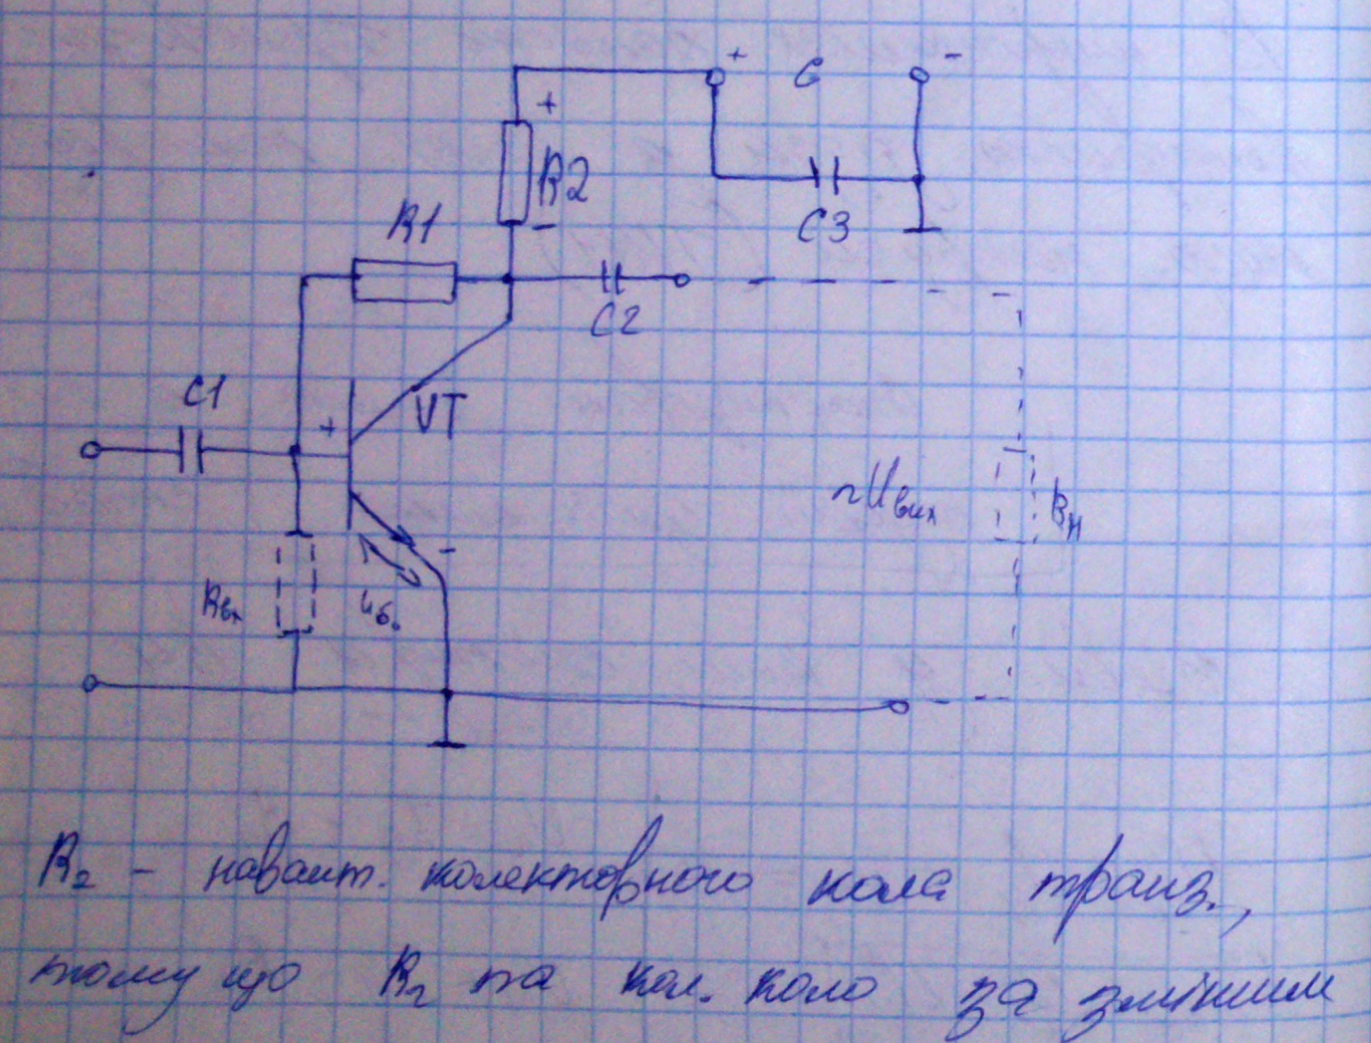 + G -
+
R2
-
R1
C3
C2
C1
+ VT
~Uвих
Rн
-
Rвх
Uб.
R2 - навант. колекторного кола транз.,
тому що R2 та кол. коло за змінним